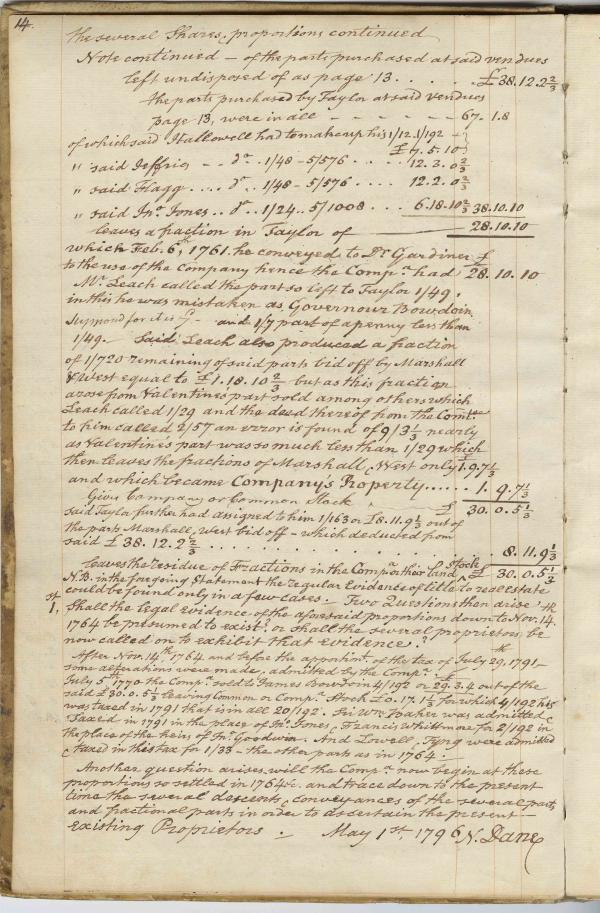 14.
the several Shares, proportions continued
Note continued — of the parts purchased at said vendues
left undisposed of as page 13 . . . . . £38.12.2 2/3
the parts purchased by Taylor at said vendues
page 13, were in all — — — — — 67.1.8
of which said Hallowell had to make up his 1/12. 1/192 — £7.5.10
" said Jeffries - - do. . 1/48 - 5/576 . . . . 12.3.0 2/3
" said Flagg . . . . do. . 1/48 - 5/576 . . . . . 12.2.0 2/3
" said Jno. Jones . . do. . 1/24 . . 5/1008 . . . 6.18.10 2/3 38.10.10
leaves a fraction in Taylor of — 28.10.10
which Feb. 6th, 1761. he conveyed to Dr. Gardiner £
to the use of the Company hence the Compy. had 28.10.10
Mr. Leach called the part so left to Taylor 1/49.
in this he was mistaken as Governour Bowdoin
and 1/7 part of a penny less than
1/49. — Said Leach also produced a fraction
of 1/720 remaining of said parts bid off by Marshall
& West equal to £1.18.10 2/3 but as this fraction
arose from Valentines part sold among others which
Leach called 1/29 and the deed thereof from the Comtee
to him called 2/57 an error is found of 9/3 1/3 nearly
as Valentines part was so much less than 1/29 which
then leaves the fractions of Marshall & West only £1.9.7 1/3
and which became Company's Property . . . . . . 1.9.7 1/3
Gives Company or Common Stock £ 30.0.5 1/3
said Taylor further had assigned to him 1/163 or £8.11.9 1/3 out of
the parts Marshall, West bid off — which deducted from
said £38.12.2 2/3 . . . . . . . . . . . . 8.11.9 1/3
leaves the residue of Fractions in the Compy. or their land stock £ 30.0.5 1/3
N.B. in the foregoing Statement the regular Evidence of title to real estate
could be found only in a few cases — Two Questions then arise
1st. Shall the legal Evidence of the aforesaid proportions down to Nov. 14th.
1764 be presumed to exist? or shall the several proprietors be
now called on to exhibit that evidence.?
After Nov. 14th, 1764 and before the apportiont. of the tax of July 29th, 1791 —
some alterations were made, admitted by the Compy. —
July 5th 1770 the Compy. sold to James Bowdoin 4/192 or £29.3.4 out of the
said £30.0.5 1/3 leaving Common or Compy. Stock £0.17.1 1/3 for which 4/192 his
was taxed in 1791 that is in all 20/192. Sir Wm. Baker was admitted &
taxed in 1791 in the place of Jno. Jones, Francis Whittmore for 2/192 in
the place of the heirs of Jno. Goodwin. And Lowell, Tyng were admitted
& taxed in this tax for 1/33 — the other parts as in 1764. —
Another question arises, will the Compy. now begin at these
proportions so settled in 1764 &c. and trace down to the present
time the several descents, conveyances of the several parts
and fractional parts in order to ascertain the present —
existing Proprietors. May 1st, 1796 N. Dane